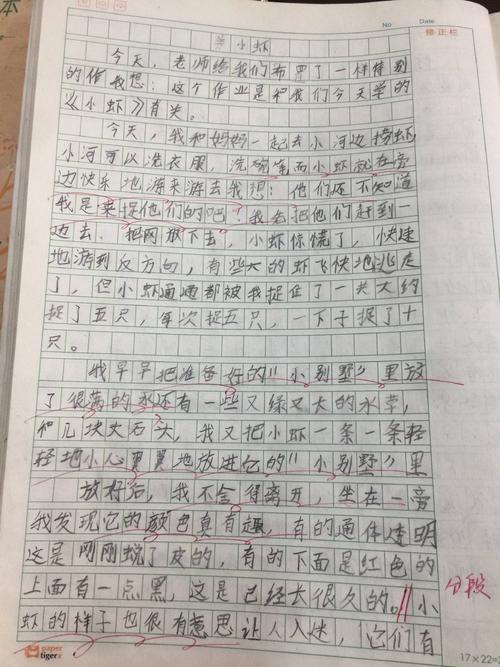 No Date
修正栏
小虾
今天,老师给我们布置了一样特别
的作我想:这个作业是和我们今天学的
《小虾》有关。
今天,我和妈妈一起去小河边捞虾,
小河可以洗衣服,洗碗筷而小虾就在旁
边快乐地游来游去我想:他们还不知道
我是来捉他们的吧?我会把他们赶到一
边去.把网放下去,小虾惊慌了,快速
地游到反方向,有些大的虾飞快地逃走
了,但小虾通通都被我捉住了一共大约
捉了五只,每次捉五只,一下子捉了十
只。
我早早把准备好的“小别墅”里放
了很满的水还有一些又绿又大的水草,
和几块大石头,我又把小虾一条一条轻
轻地小心翼翼地放进它的“小别墅”里
放好后,我不舍得离开,坐在一旁
我发现它的颜色真有趣,有的通体透明
这是刚刚蜕了皮的,有的下面是红色的
上面有一点黑,这是已经长很久的。小
分段
虾的样子也很有意思让人入迷,它们有
paper tiger 17×22=